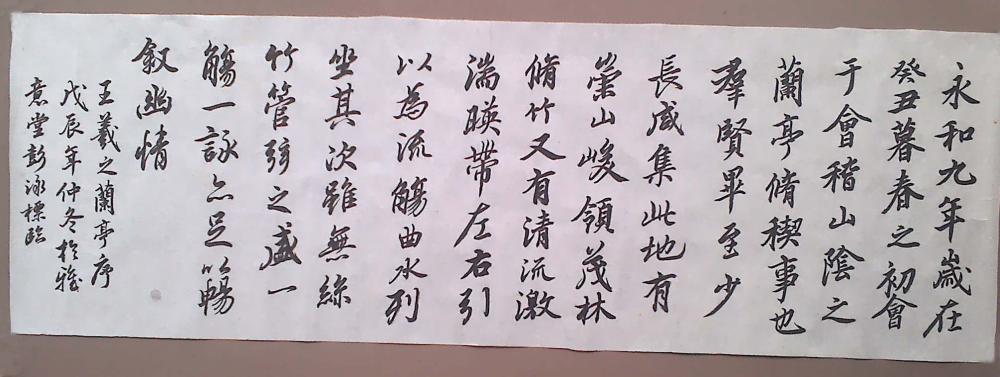 永和九年歲在
癸丑暮春之初會
于會稽山陰之
蘭亭脩稧事也
羣賢畢至少
長咸集此地有
崇山峻領茂林
脩竹又有清流激
湍暎帶左右引
以為流觴曲水列
坐其次雖無絲
竹管弦之盛一
觴一詠亦足以暢
叙幽情
王羲之蘭亭序
戊辰年仲冬於雅
意堂彭泳標臨